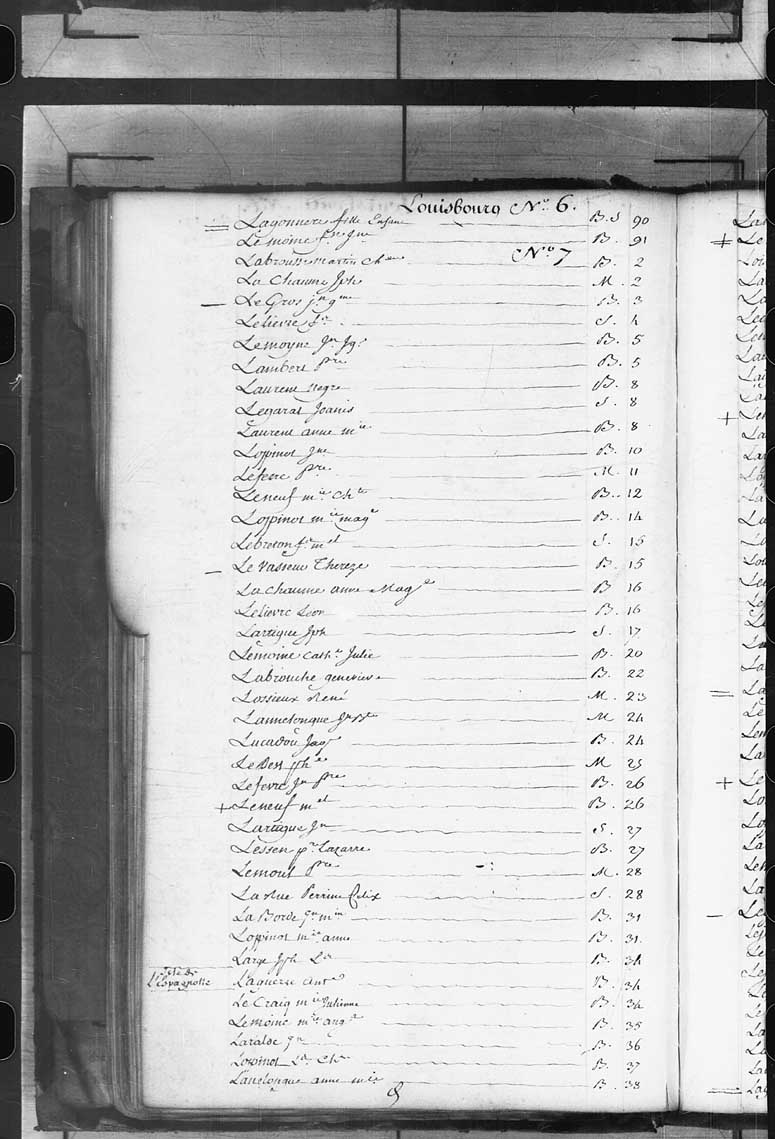 Louisbourg No. 6.
Lagonnere fille Enfant B.S 90
Lemoine fr. Jne B. 91
Labrousse martin Ch No 7 B. 2
La Chaume Jph M. 2
Le Gros jn gme B. 3
Lelievre fr. S. 4
Lemoyne Jn Jqs B. 5
Lambert pre B. 5
Laurent negre B. 8
Legarat Joanis S. 8
Laurent anne mie B. 8
Loppinot Jne B. 10
Lefevre pre. M. 11
Leneuf mie Chte B. 12
Loppinot mie mage B. 14
Lebreton fr mel S. 15
Le Vasseur Thereze B. 15
La Chaume anne Mage B 16
Lelievre Leon B. 16
Lartigue Jph S. 17
Lemoine Cathne Julie B. 20
Labrouche genevieve B. 22
Lossieux René M. 23
Lannelongue Jn Bte M 24
Lucadou Jaqs B. 24
Le Dess M 25
Lefevre Jn pre B. 26
+ Leneuf mel B. 26
Lartigue Jn S. 27
Lessen pre Lazarre B. 27
Lemont pre M. 28
La Rue Perrine Felix S 28
La Borde Jn min B. 31
Loppinot mie anne B. 31.
Large Jph Ls B. 34
L'Espagnolle Laguerre Ante B. 34
Le Craiq mie Julienne B. 34
Lemoine mie ange B. 35
Laralde Jn B. 36
Loppinot Ls Ches B. 37
Lanelongue anne mie B. 38